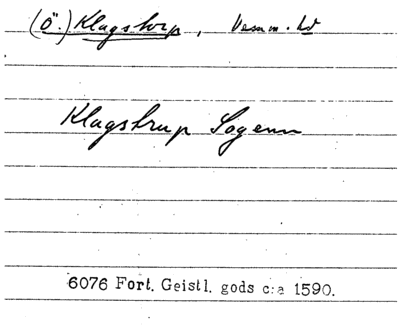 (Ö.) Klagstorp, Vemm. hd
Klagstrup Sogenn
6076 Fort. Geistl. gods c:a 1590.